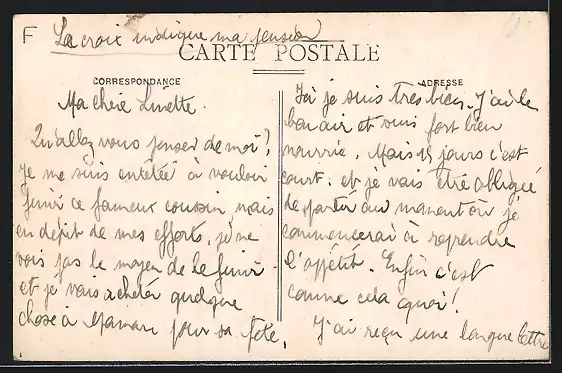 F
La croix indique ma pension
CARTE POSTALE
CORRESPONDANCE
Ma chère Linette.
Qu'allez vous penser de moi ?
je me suis entêtée à vouloir
finir ce fameux coussin, mais
en dépit de mes efforts, je ne
vois pas le moyen de le finir
et je vais acheter quelque
chose à Maman pour sa fête.
ADRESSE
Ici je suis très bien. J'ai le
bon air et suis fort bien
nourrie. Mais 15 jours c'est
court. et je vais être obligée
de partir au moment où je
commencerai à reprendre
l'appétit. Enfin c'est
comme cela quoi !
J'ai reçu une longue lettre